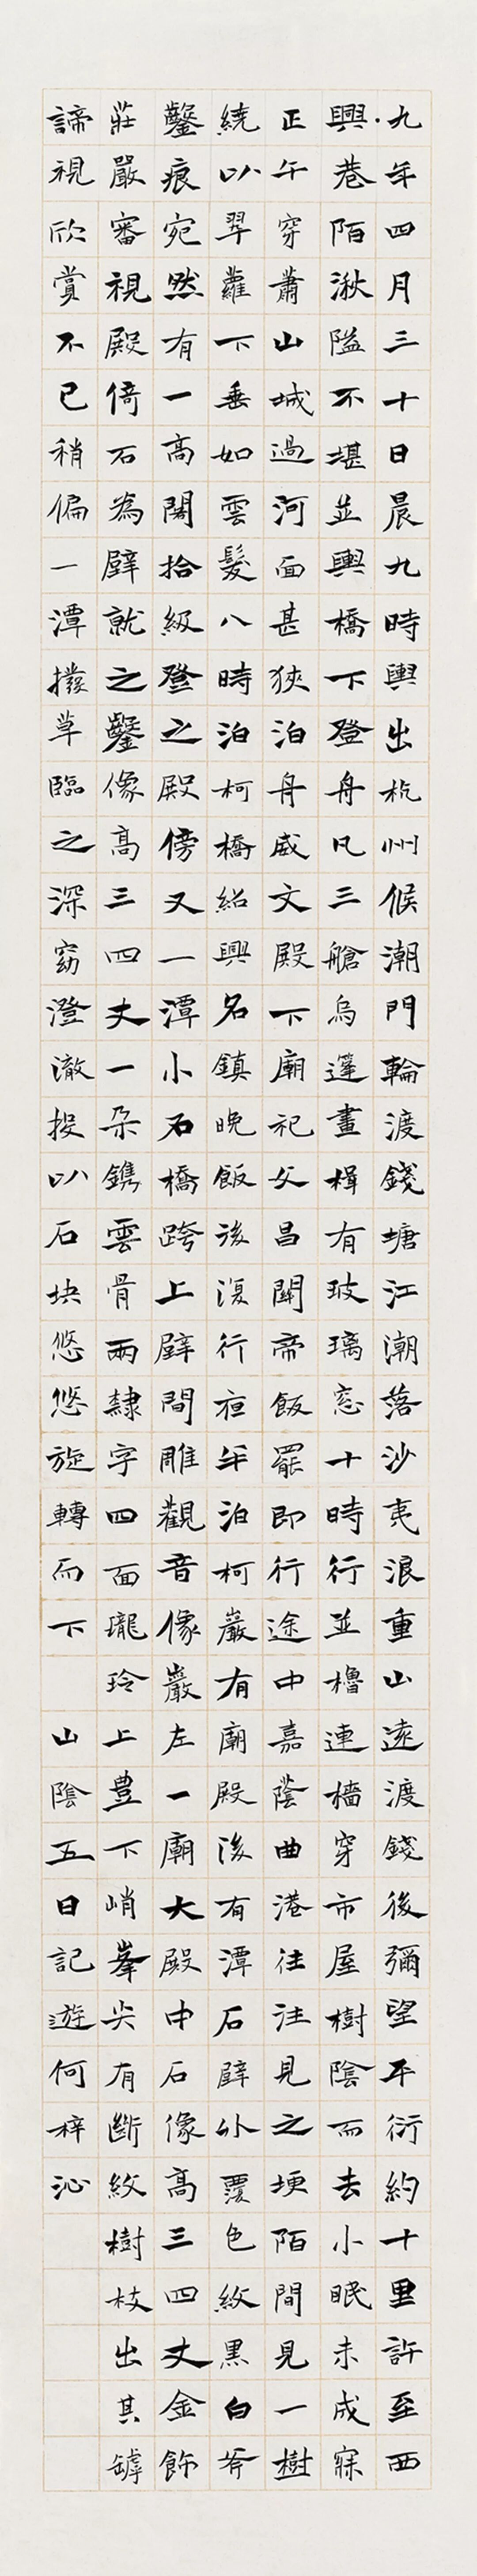 九年四月三十日晨九時輿出杭州候潮門輪渡錢塘江潮落沙夷浪重山遠渡錢後彌望平衍約十里許至西
興·巷陌湫隘不堪並輿橋下登舟凡三艙烏篷畫楫有玻璃窓十時行並櫓連檣穿市屋樹陰而去小眠未成寐
正午穿蕭山城過河面甚狹泊舟咸文殿下廟祀文昌關帝飯罷即行途中嘉蔭曲港往往見之埂陌間見一樹
繞以翠蘿下垂如雲髮八時泊柯橋紹興名鎮晚飯後復行夜半泊柯巖有廟殿後有潭石壁外覆色紋黑白斧
鑿痕宛然有一高閣拾級登之殿傍又一潭小石橋跨上壁間雕觀音像巖左一廟大殿中石像高三四丈金飾
莊嚴審視殿倚石為壁就之鑿像高三四丈一朵鐫雲骨兩隸字四面瓏玲上豊下峭峯尖有斷紋樹枝出其罅
諦視欣賞不已稍偏一潭撥草臨之深窈澄澈投以石块悠悠旋轉而下 山陰五日記遊何梓沁